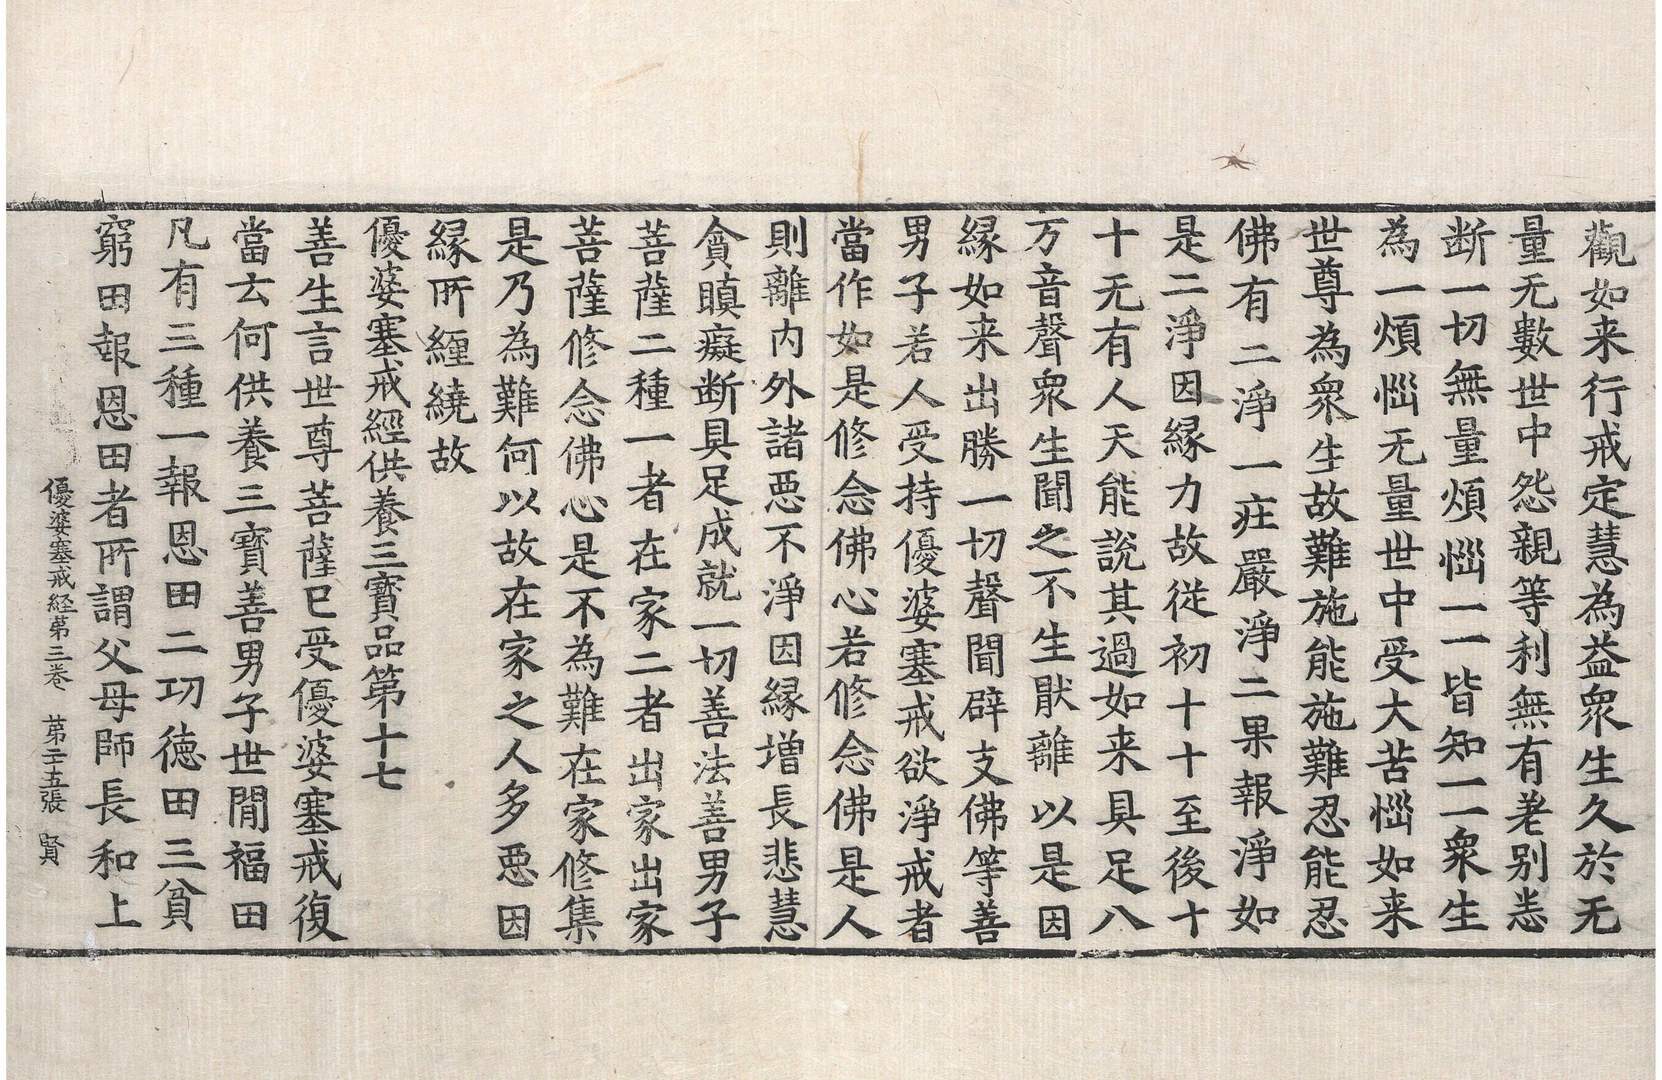 觀如来行戒定慧為益眾生久於无
量无數世中怨親等利無有差别悉
断一切無量煩惱一一皆知一一眾生
為一煩惱无量世中受大苦惱如来
世尊為眾生故難施能施難忍能忍
佛有二淨一疰嚴淨二果報淨如
是二淨因縁力故従初十十至後十
十无有人天能說其過如来具足八
万音聲眾生聞之不生猒離以是因
縁如来出勝一切聲聞辟支佛等善
男子若人受持優婆塞戒欲淨戒者
當作如是修念佛心若修念佛是人
則離内外諸惡不淨因縁増長悲慧
貪瞋癡断具足成就一切善法善男子
菩薩二種一者在家二者出家出家
菩薩修念佛心是不為難在家修集
是乃為難何以故在家之人多惡因
縁所纒繞故
優婆塞戒經供養三寶品第十七
善生言世尊菩薩已受優婆塞戒復
當云何供養三寶善男子世閒福田
凡有三種一報恩田二功徳田三貧
窮田報恩田者所謂父母師長和上
優婆塞戒経第三卷　第二十五張　賢